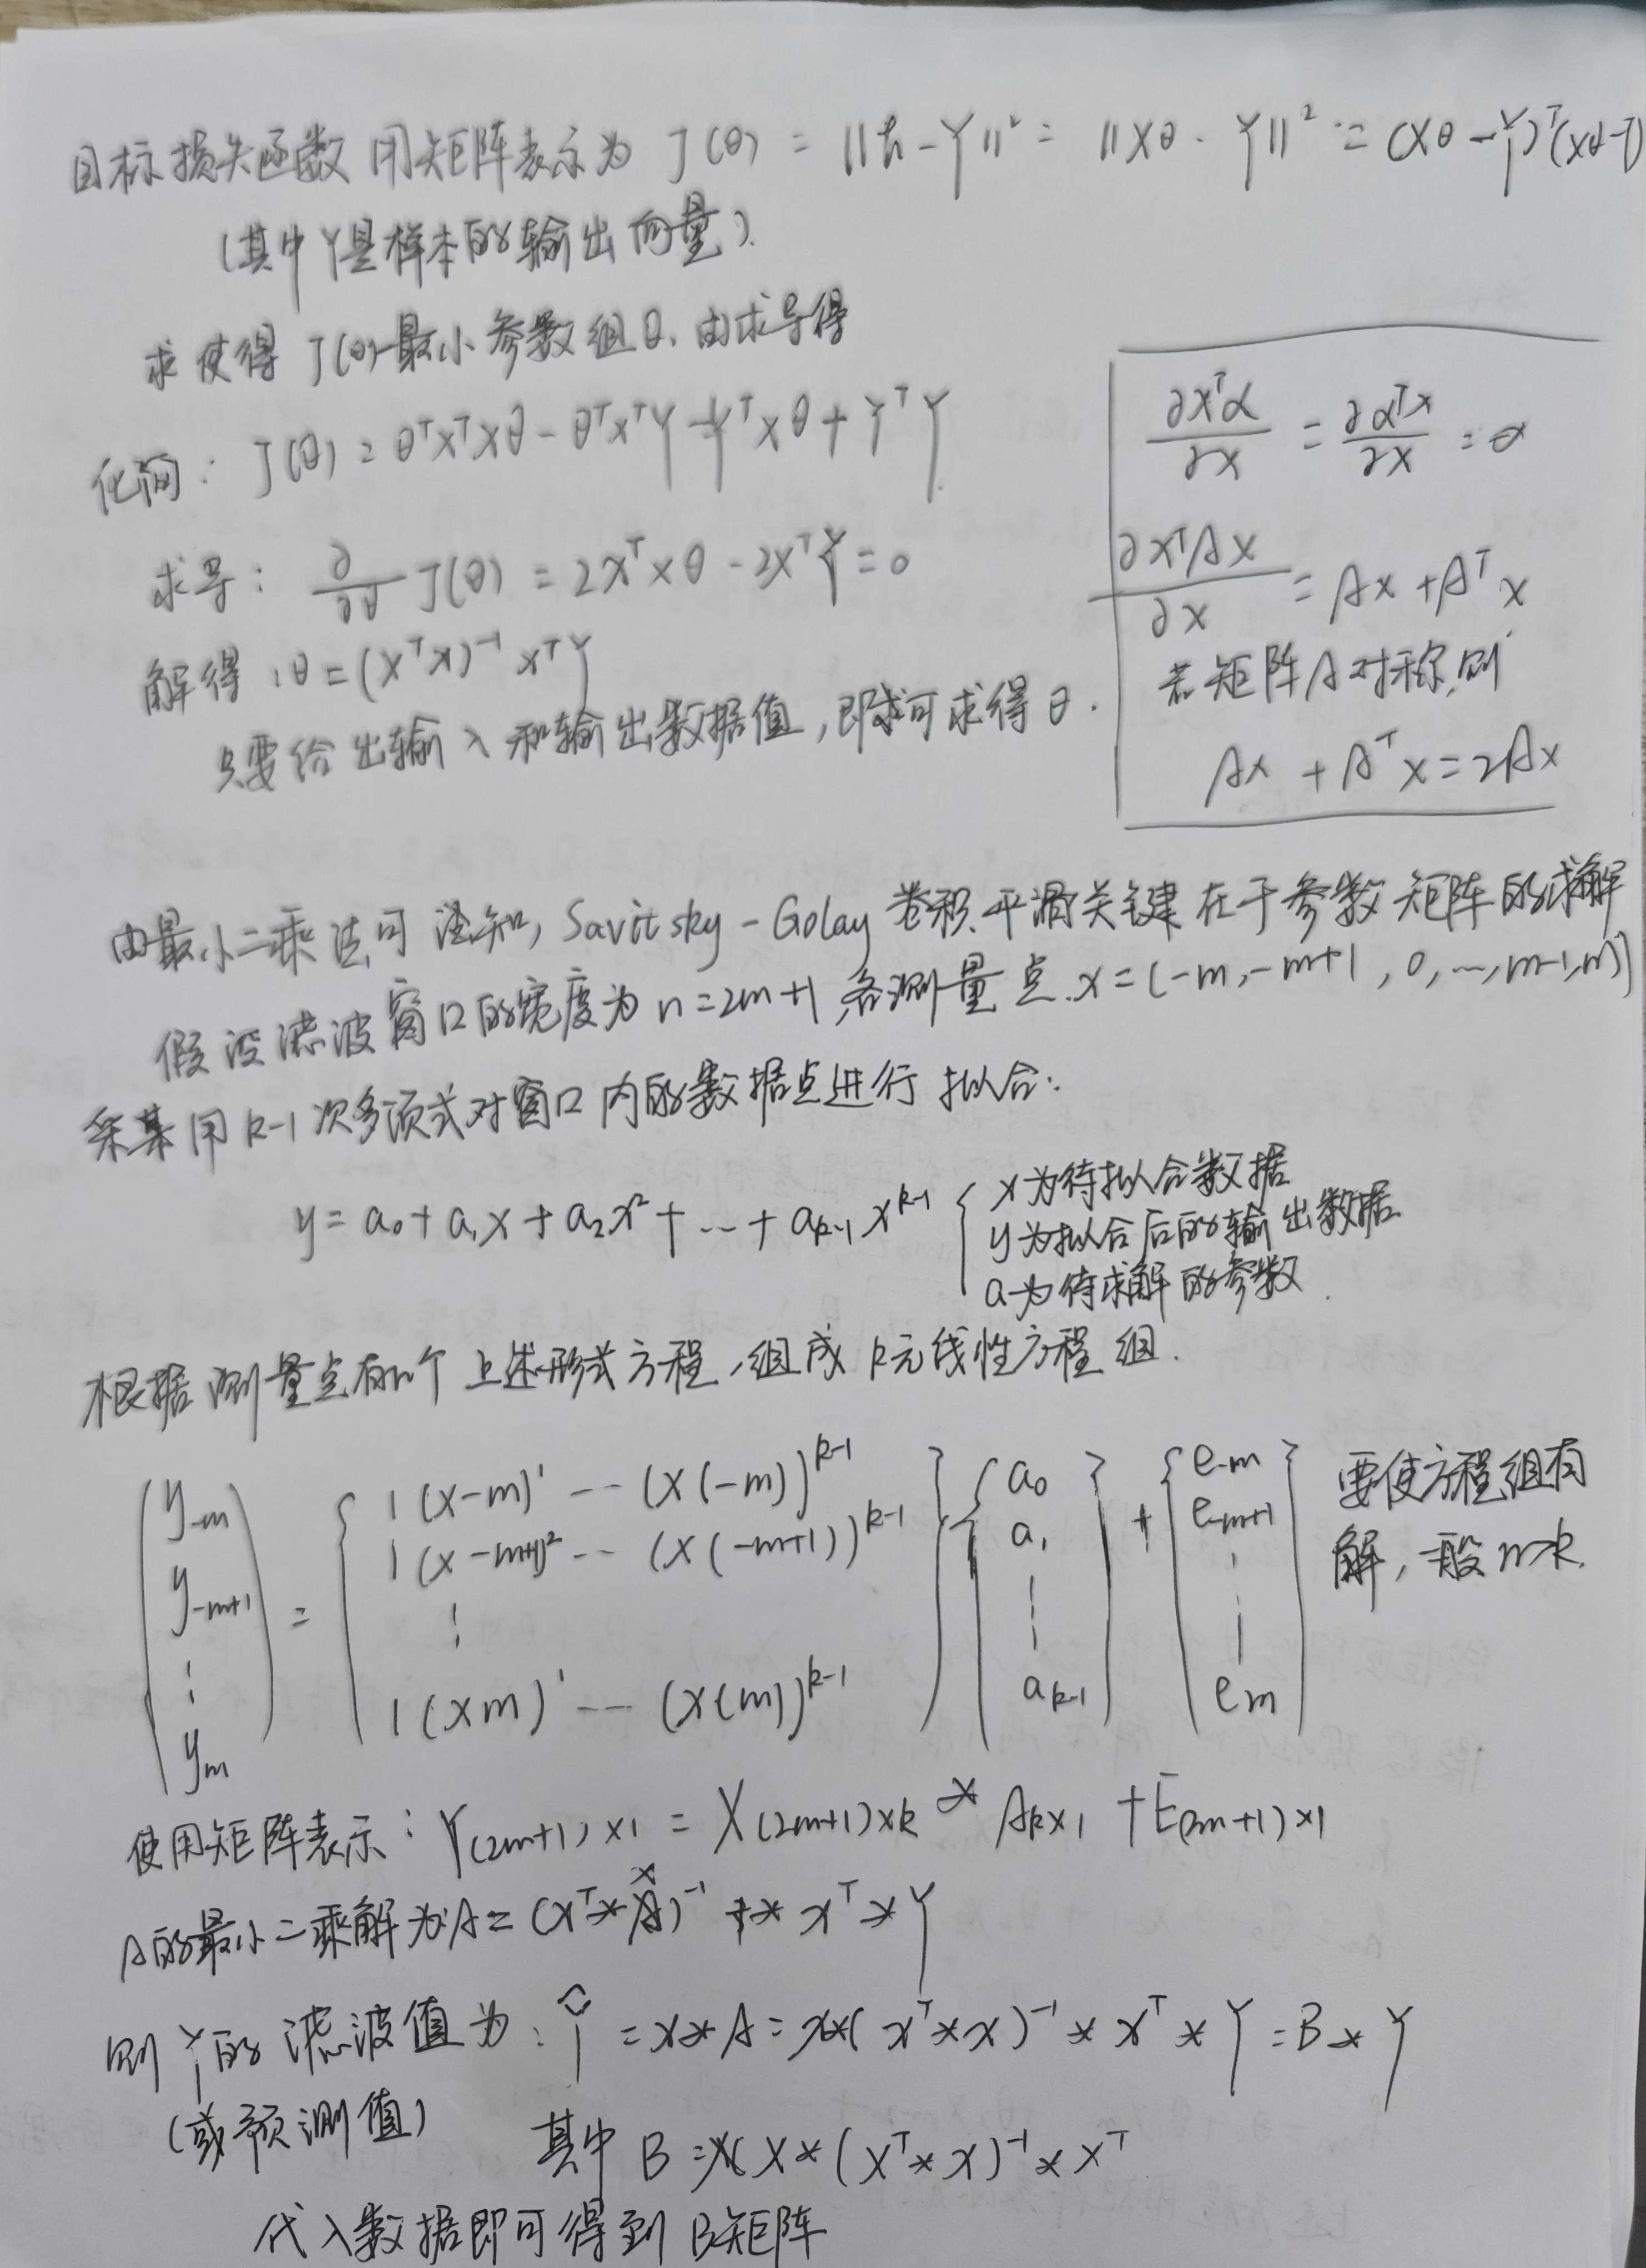 目标损失函数用矩阵表示为 J(θ) = ||h-Y||² = ||Xθ-Y||² = (Xθ-Y)ᵀ(Xθ-Y)
(其中Y是样本的输出向量).
求使得J(θ)最小参数组θ,由求导得
化简: J(θ) = θᵀXᵀXθ - θᵀXᵀY - YᵀXθ + YᵀY
求导: ∂/∂θ J(θ) = 2XᵀXθ - 2XᵀY = 0
解得:θ = (XᵀX)⁻¹XᵀY
只要给出输入和输出数据值,即可求得θ.
∂Xᵀα/∂X = ∂αᵀX/∂X = α
∂XᵀAX/∂X = AX + AᵀX
若矩阵A对称,则
AX + AᵀX = 2AX
由最小二乘法可知, Savitsky-Golay 卷积平滑关键在于参数矩阵的求解
假设滤波窗口的宽度为 n=2m+1,各测量点 x=(-m,-m+1,0,…,m-1,m)
采用k-1次多项式对窗口内的数据点进行拟合:
y = a₀ + a₁x + a₂x² + … + aₖ₋₁xᵏ⁻¹
x为待拟合数据
y为拟合后的输出数据
a为待求解的参数.
根据测量点有n个上述形式方程,组成k元线性方程组.
y₋ₘ 1 (x-m)¹ … (x(-m))ᵏ⁻¹ a₀ e-m
y₋ₘ₊₁ = 1 (x-m+1)² … (x(-m+1))ᵏ⁻¹ a₁ + e-m+1
⋮ ⋮ ⋮ ⋮
yₘ 1 (xm)¹ … (x(m))ᵏ⁻¹ aₖ₋₁ eₘ
要使方程组有
解,一般n>k.
使用矩阵表示: Y(2m+1)×1 = X(2m+1)×k * Ak×1 + E(2m+1)×1
A的最小二乘解为A = (Xᵀ*X)⁻¹ * Xᵀ * Y
则Y的滤波值为: Ŷ = X*A = X*(Xᵀ*X)⁻¹ * Xᵀ * Y = B*Y
(或预测值)
其中 B = X*(Xᵀ*X)⁻¹*Xᵀ
代入数据即可得到B矩阵